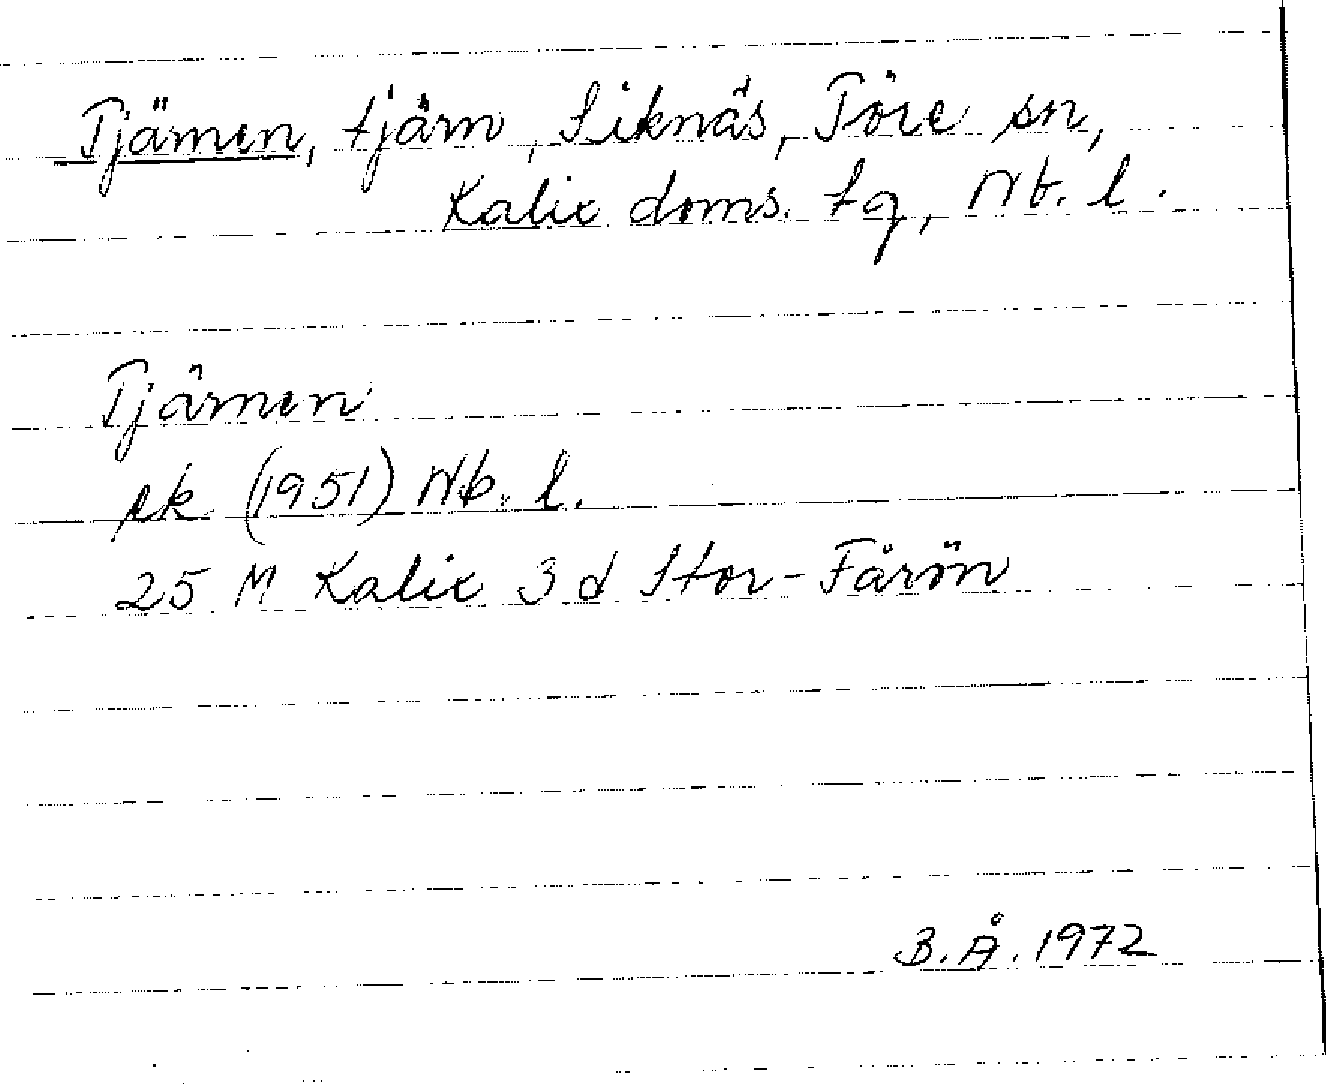 Tjämen, tjärn, Siknäs, Töre sn,
Kalix doms. tg, Nb. l.
Tjärnen
ek (1951) Nb. l.
25 M Kalix 3 d Stor-Fårön
B.Å. 1972